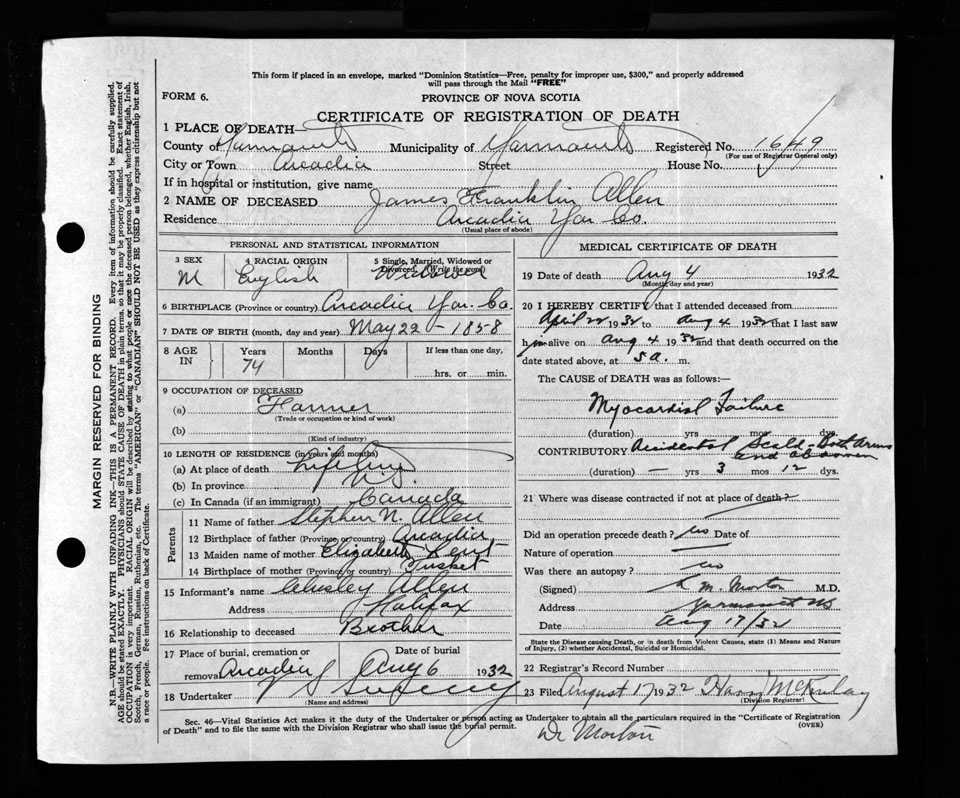 This form if placed in an envelope, marked "Dominion Statistics—Free, penalty for improper use, $300," and properly addressed
will pass through the Mail "FREE"
FORM 6.
PROVINCE OF NOVA SCOTIA
CERTIFICATE OF REGISTRATION OF DEATH
1 PLACE OF DEATH—
County of Yarmouth Municipality of Yarmouth Registered No. 1649
(For use of Registrar General only)
City or Town Arcadia Street House No.
If in hospital or institution, give name
2 NAME OF DECEASED James Franklin Allen
Residence Arcadia Yar. Co.
(Usual place of abode)
PERSONAL AND STATISTICAL INFORMATION
3 SEX M
4 RACIAL ORIGIN English
5 Single, Married, Widowed or Divorced. (Write the word) Widower
6 BIRTHPLACE (Province or country) Arcadia Yar. Co.
7 DATE OF BIRTH (month, day and year) May 22 - 1858
8 AGE IN Years 74 Months Days If less than one day, hrs. or min.
9 OCCUPATION OF DECEASED
(a) Farmer
(Trade or occupation or kind of work)
(b)
(Kind of industry)
10 LENGTH OF RESIDENCE (in years and months)
(a) At place of death
(b) In province
(c) In Canada (if an immigrant) Canada
Parents
11 Name of father Stephen N. Allen
12 Birthplace of father (Province or country) Arcadia
13 Maiden name of mother Elizabeth Lent
14 Birthplace of mother (Province or country) Tusket
15 Informant's name Allen
Address Halifax
16 Relationship to deceased Brother
17 Place of burial, cremation or removal Arcadia Date of burial Aug 6 1932
18 Undertaker V S Sweeny
(Name and address)
MEDICAL CERTIFICATE OF DEATH
19 Date of death Aug 4 1932
(Month, day and year)
20 I HEREBY CERTIFY that I attended deceased from
April 22 1932 to Aug 4 1932 that I last saw
him alive on Aug 4 1932 and that death occurred on the
date stated above, at 5 a. m.
The CAUSE OF DEATH was as follows:—
Myocardial Failure
(duration) yrs mos dys.
CONTRIBUTORY Accidental Scald - Both Arms
and abdomen
(duration) — yrs 3 mos 12 dys.
21 Where was disease contracted if not at place of death?
Did an operation precede death? No Date of
Nature of operation
Was there an autopsy? No
(Signed) L. M. Morton M.D.
Address Yarmouth NS
Date Aug 17/32
State the Disease causing Death, or in death from Violent Causes, state (1) Means and Nature
of Injury, (2) whether Accidental, Suicidal or Homicidal.
22 Registrar's Record Number
23 Filed August 17 1932 Harry McKinlay
(Division Registrar)
Sec. 46—Vital Statistics Act makes it the duty of the Undertaker or person acting as Undertaker to obtain all the particulars required in the "Certificate of Registration
of Death" and to file the same with the Division Registrar who shall issue the burial permit.
(OVER)
Dr Morton
MARGIN RESERVED FOR BINDING
N.B.—WRITE PLAINLY WITH UNFADING INK—THIS IS A PERMANENT RECORD. Every item of information should be carefully supplied.
AGE should be stated EXACTLY. PHYSICIANS should STATE CAUSE OF DEATH in plain terms, so that it may be properly classified. Exact statement of
OCCUPATION is very important. RACIAL ORIGIN will be described by stating to what people or race the deceased person belonged, whether English, Irish,
Scotch, French, German, Russian, Ruthenian, etc. The terms "AMERICAN" or "CANADIAN" SHOULD NOT BE USED as they express citizenship but not
a race or people. See instructions on back of Certificate.